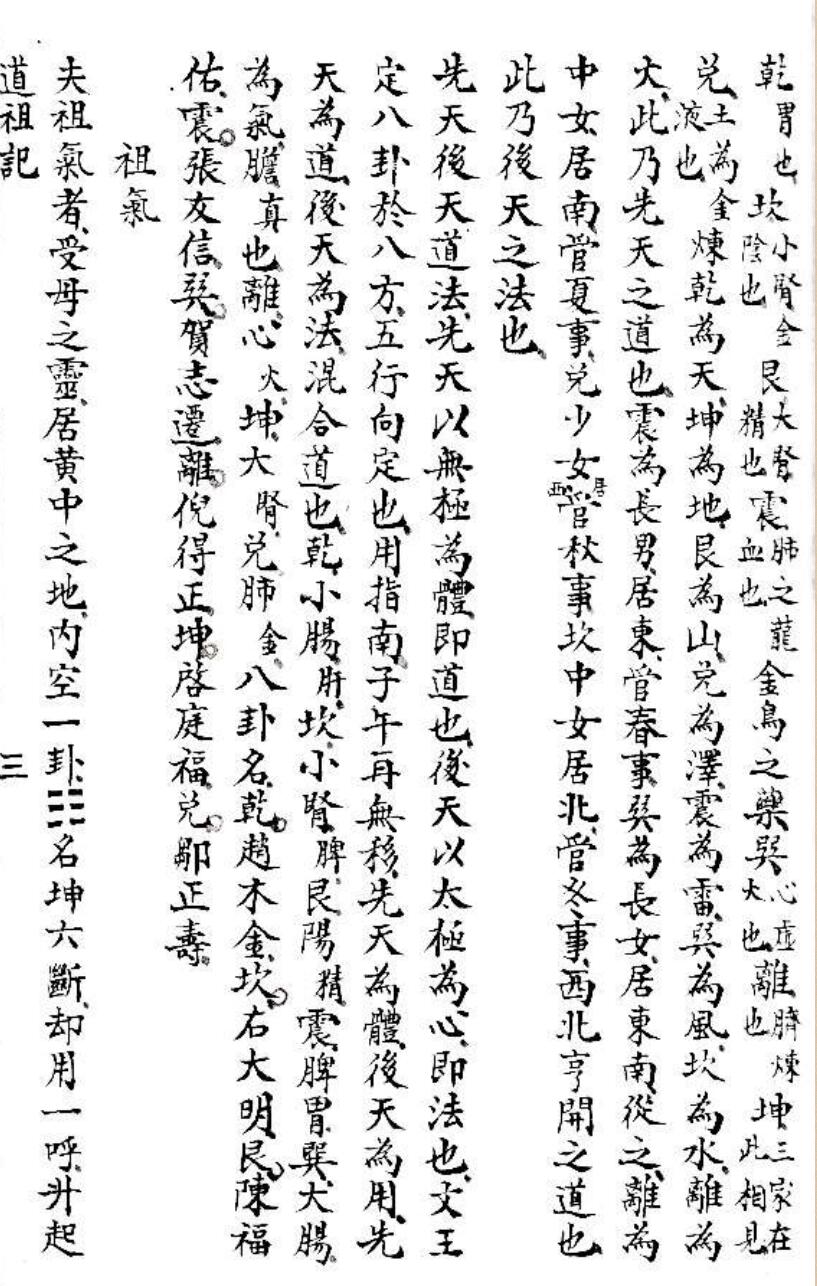 乾胃也坎小腎金陰也艮大腎精也震肺之蘢血也金烏之藥巽心虛火也離臍煉也坤三家在此相見
兌土為金液也煉乾為天坤為地艮為山兌為澤震為雷巽為風坎為水離為
火此乃先天之道也震為長男居東管春事巽為長女居東南從之離為
中女居南管夏事兌少女居西管秋事坎中女居北管冬事西北亨開之道也
此乃後天之法也
先天後天道法先天以無極為體即道也後天以太極為心即法也文王
定八卦於八方五行向定也用指南子午再無移先天為體後天為用先
天為道後天為法混合道也乾小腸肝坎小腎脾艮陽精震脾胃巽大腸
為氣膽真也離心火坤大腎兌肺金八卦名乾趙木金坎右大明艮陳福
佑震張友信巽賀志遷離倪得正坤啓庭福兌鄒正壽
祖氣
夫祖氣者受母之靈居黃中之地內空一卦☷名坤六斷却用一呼升起
道祖記 三